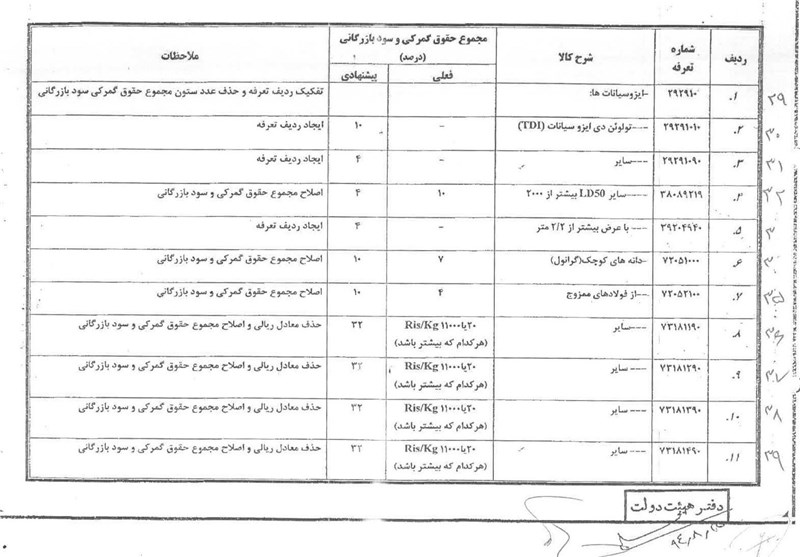 ردیف شماره تعرفه شرح کالا مجموع حقوق گمرکی و سود بازرگانی (درصد) ملاحظات
فعلی پیشنهادی
۱. ۲۹۲۹۱۰ -ایزوسیانات ها: تفکیک ردیف تعرفه و حذف عدد ستون مجموع حقوق گمرکی سود بازرگانی ۲۹
۲. ۲۹۲۹۱۰۱۰ ---تولوئن دی ایزو سیانات (TDI) - ۱۰ ایجاد ردیف تعرفه ۳۰
۳. ۲۹۲۹۱۰۹۰ ---سایر - ۴ ایجاد ردیف تعرفه ۳۱
۴. ۳۸۰۸۹۲۱۹ ----سایر LD50 بیشتر از ۲۰۰۰ ۱۰ ۴ اصلاح مجموع حقوق گمرکی و سود بازرگانی ۳۲
۵. ۳۹۲۰۴۹۴۰ --- با عرض بیشتر از ۲/۲ متر - ۴ ایجاد ردیف تعرفه
۶. ۷۲۰۵۱۰۰۰ -دانه های کوچک(گرانول) ۷ ۱۰ اصلاح مجموع حقوق گمرکی و سود بازرگانی
۷. ۷۲۰۵۲۱۰۰ --از فولادهای ممزوج ۴ ۱۰ اصلاح مجموع حقوق گمرکی و سود بازرگانی ۳۵
۸. ۷۳۱۸۱۱۹۰ ---سایر ۲۰یا۱۱۰۰۰ Ris/Kg (هرکدام که بیشتر باشد) ۳۲ حذف معادل ریالی و اصلاح مجموع حقوق گمرکی و سود بازرگانی ۳۶
۹. ۷۳۱۸۱۲۹۰ --- سایر ۲۰یا۱۱۰۰۰ Ris/Kg (هرکدام که بیشتر باشد) ۳۲ حذف معادل ریالی و اصلاح مجموع حقوق گمرکی و سود بازرگانی ۳۷
۱۰. ۷۳۱۸۱۳۹۰ --- سایر ۲۰یا۱۱۰۰۰ Ris/Kg (هرکدام که بیشتر باشد) ۳۲ حذف معادل ریالی و اصلاح مجموع حقوق گمرکی و سود بازرگانی ۳۸
۱۱. ۷۳۱۸۱۴۹۰ --- سایر ۲۰یا۱۱۰۰۰ Ris/Kg (هرکدام که بیشتر باشد) ۳۲ حذف معادل ریالی و اصلاح مجموع حقوق گمرکی و سود بازرگانی ۳۹
دفتر هیئت دولت